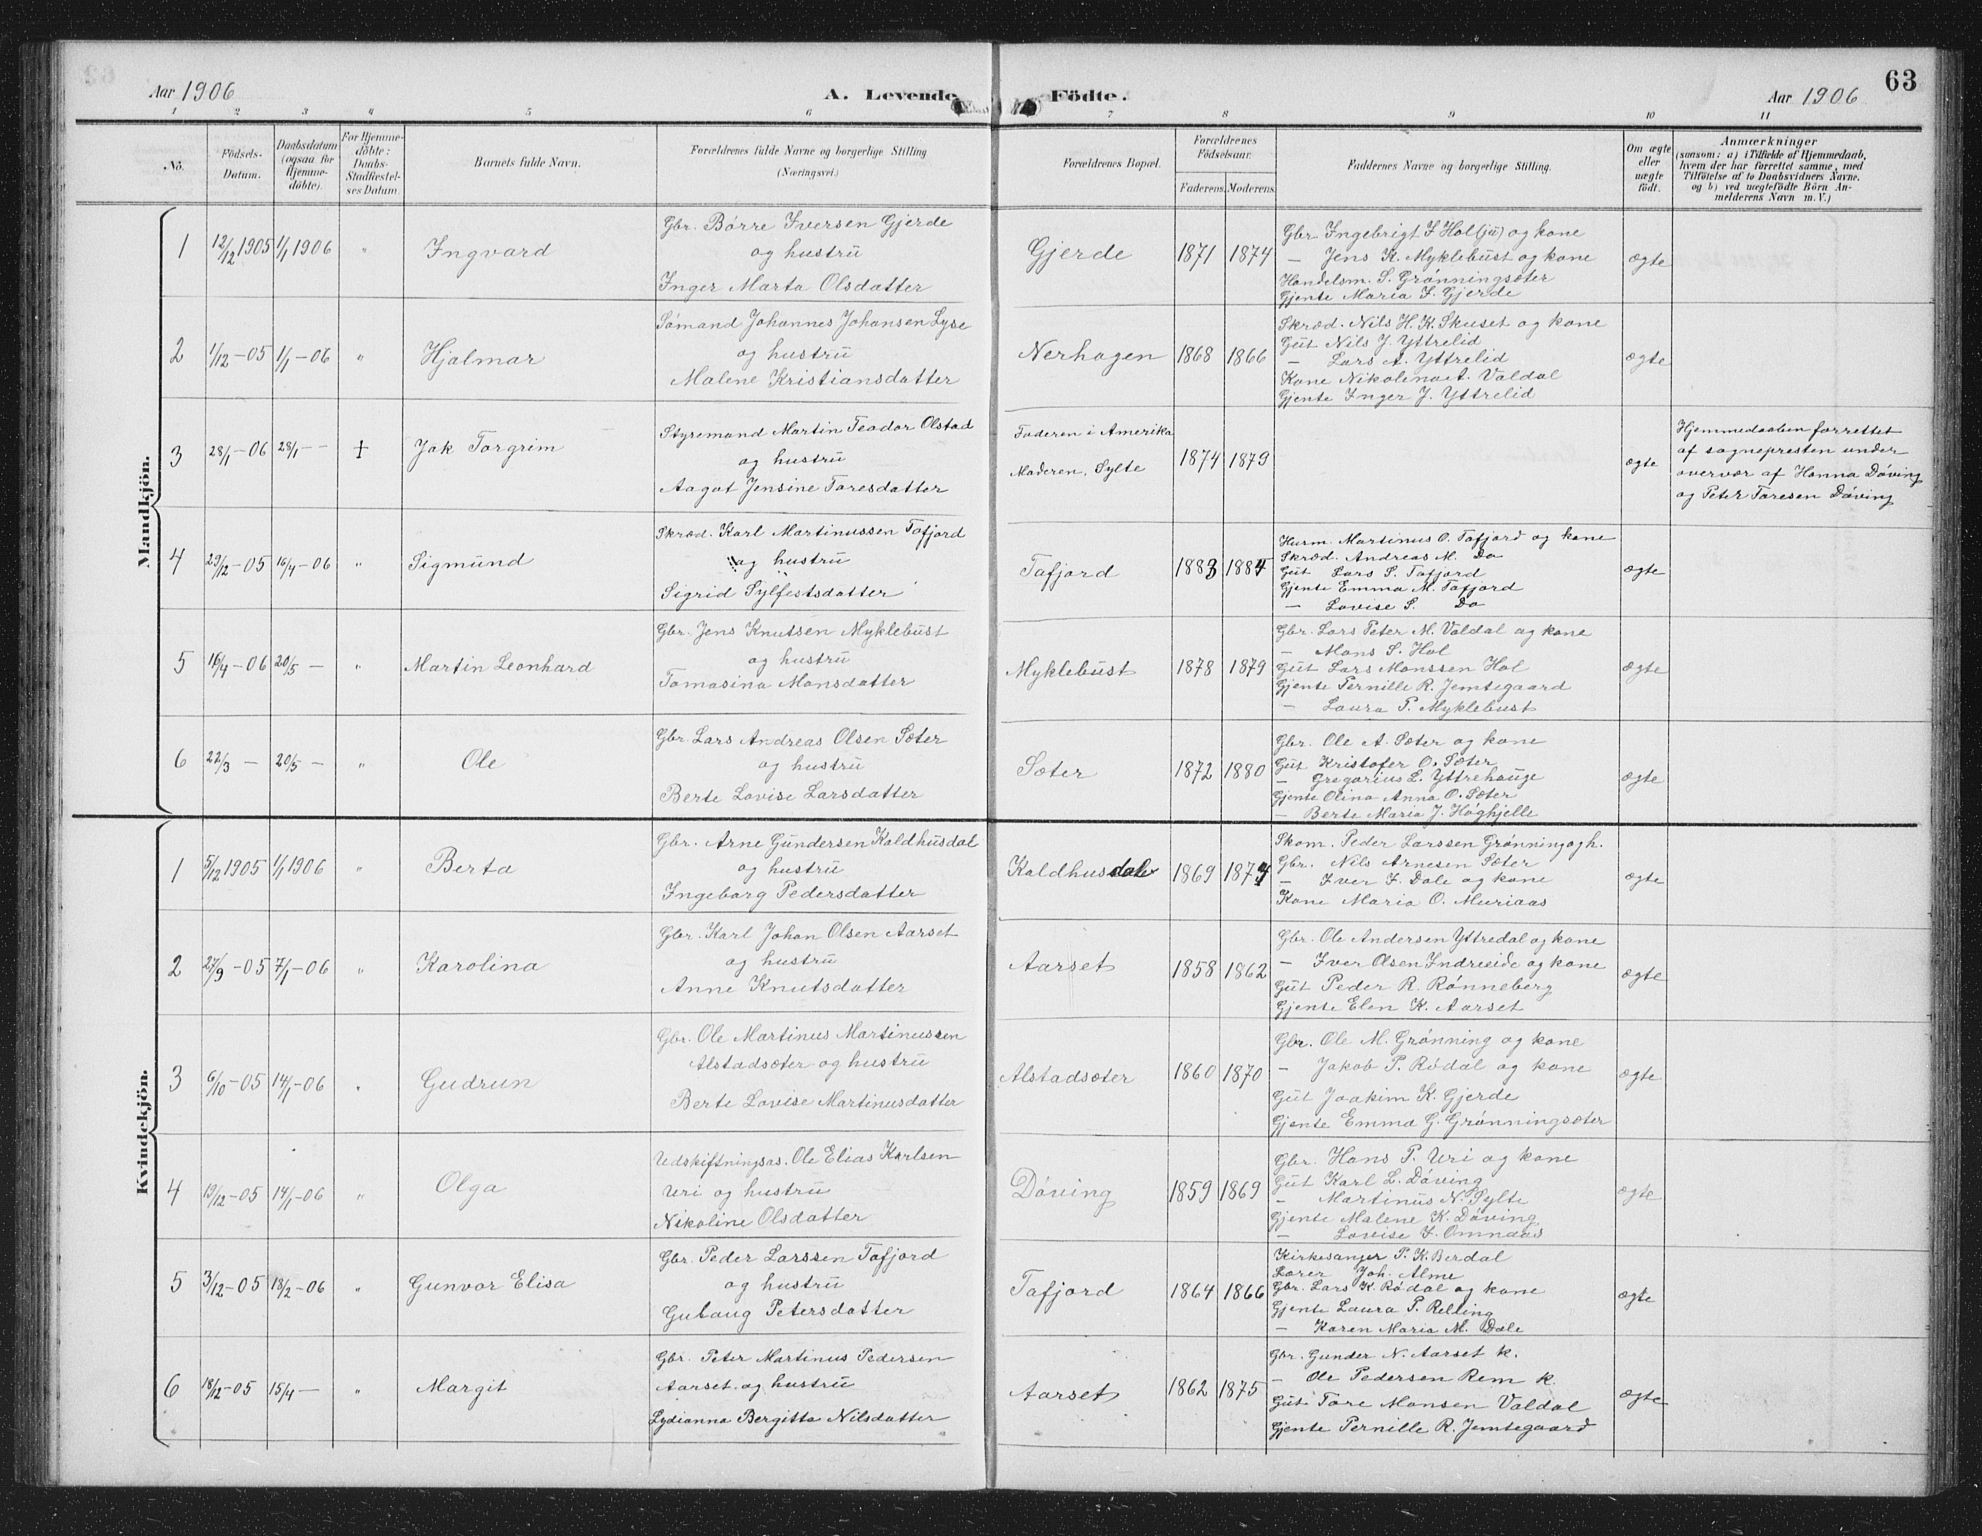 63
Aar 1906
A. Levende Födte.
Aar 1906
1 2 3 4 5 6 7 8 9 10 11
No.
Födsels-
Datum.
Daabsdatum
(ogsaa for
Hjemme-
döbte).
For Hjemme-
döbte:
Daabs-
Stadfæstel-
ses Datum.
Barnets fulde Navn.
Forældrenes fulde Navne og borgerlige Stilling
(Næringsvei.)
Forældrenes Bopæl.
Forældrenes
Födselsaar.
Faderens. Moderens.
Faddernes Navne og borgerlige Stilling.
Om ægte
eller
uægte
födt.
Anmærkninger
(saasom: a) i Tilfælde af Hjemmedaab,
hvem der har forrettet samme, med
Tilföielse af to Daabsvidners Navne,
og b) ved uægtefödte Börn An-
melderens Navn m. V.)
Mandkjön.
1 12/12 1905 1/1 1906 " Ingvard
Gbr. Börre Iversen Gjerde
og hustru
Inger Marta Olsdatter
Gjerde 1871 1874
Gbr. Ingebrigt I Hol (ju) og kone
— Jens K. Myklebust og kone
Handelsm. S. Grönningsæter
Gjente Maria I. Gjerde
ægte
2 1/12 - 05 1/1 - 06 " Hjalmar
Sömand Johannes Johansen Lyse
og hustru
Malene Kristiansdatter
Nerhagen 1868 1866
Skræd. Nils H. K. Skuset og kone
Gut Nils J. Yttrelid
— Lars A. Yttrelid
Kone Nikolina A. Valdal
Gjente Inger J. Yttrelid
ægte
3 28/1 - 06 28/1 - - + Jak Torgrim
Styremand Martin Teodor Olstad
og hustru
Aagot Jensine Toresdatter
Faderen i Amerika
Moderen, Sylte
1874 1879
ægte
Hjemmedaaben forrettet
af sognepresten under
overvær af Hanna Döving
og Peter Toresen Döving
4 29/12 - 05 16/4 - 06 " Sigmund
Skræd. Karl Martinussen Tafjord
og hustru
Sigrid Sylfestsdatter
Tafjord 1883 1884
Husm. Martinus O. Tafjord og kone
Skræd. Andreas M. Do
Gut Lars S. Tafjord
Gjente Emma M. Tafjord
— Lovise S. Do
ægte
5 16/4 - 06 20/5 — " Martin Leonhard
Gbr. Jens Knutsen Myklebust
og hustru
Tomasina Monsdatter
Myklebust 1878 1879
Gbr. Lars Peter M. Valdal og kone
— Mons S. Hol
Gut Lars Monssen Hol
Gjente Pernille R. Jemtegaard
— Laura P. Myklebust
ægte
6 22/3 — 20/5 — " Ole
Gbr Lars Andreas Olsen Sæter
og hustru
Berte Lovise Larsdatter
Sæter 1872 1880
Gbr. Ole A. Sæter og kone
Gut Kristofer O. Sæter
— Gregorius L. Yttrehauge
Gjente Olina Anna O. Sæter
— Berte Maria J. Höghjelle
ægte
Kvindekjön.
1 5/12 1905 1/1 1906 " Berta
Gbr. Arne Gundersen Kaldhusdal
og hustru
Ingeborg Pedersdatter
Kaldhusdale 1869 1874
Skom. Peder Larssen Grönning ogh.
Gbr. Nils Arnesen Sæter
— Iver I. Dale og kone
Kone Maria O. Muriaas
ægte
2 27/9 - 05 7/1 - 06 " Karolina
Gbr. Karl Johan Olsen Aarset
og hustru
Anne Knutsdatter
Aarset 1858 1862
Gbr. Ole Andersen Yttredal og kone
— Iver Olsen Indreeide og kone
Gut Peder R. Rönneberg
Gjente Elen K. Aarset
ægte
3 6/10 - 05 14/1 - 06 " Gudrun
Gbr. Ole Martinus Martinussen
Alstadsæter og hustru
Berte Lovise Martinusdatter
Alstadsæter 1860 1870
Gbr. Ole M. Grönning og kone
— Jakob P. Rödal og kone
Gut Joakim K. Gjerde
Gjente Emma G. Grönningsæter
ægte
4 19/12 - 05 14/1 - 06 " Olga
Udskiftningsas. Ole Elias Karlsen
Uri og hustru
Nikoline Olsdatter
Döving 1859 1869
Gbr. Hans P. Uri og kone
Gut Karl L. Döving
— Martinus N. Sylte
Gjente Malene K. Döving
— Lovise I. Omnaas
ægte
5 3/12 - 05 18/2 - 06 " Gunvor Elisa
Gbr. Peder Larssen Tafjord
og hustru
Gutaug Petersdatter
Tafjord 1864 1866
Kirkesanger P. K. Berdal
Lærer Joh. Alme
Gbr. Lars K. Rödal og kone
Gjente Laura P. Relling
— Karen Maria M. Dale
ægte
6 18/12 - 05 15/4 — " Margit
Gbr. Peter Martinus Pedersen
Aarset og hustru
Lydianna Bergitta Nilsdatter
Aarset 1862 1875
Gbr. Gunder N. Aarset k.
— Ole Pedersen Rem k.
Gut Tore Monsen Valdal
Gjente Pernille R. Jemtegaard
ægte